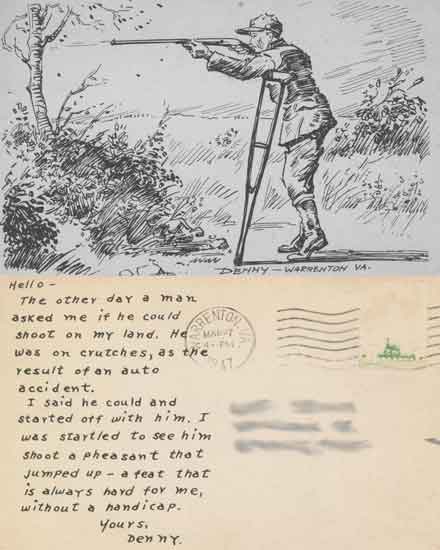 DENNY — WARRENTON VA.
Hello –
The other day a man
asked me if he could
shoot on my land. He
was on crutches, as the
result of an auto
accident.
I said he could and
started off with him. I
was startled to see him
shoot a pheasant that
jumped up – a feat that
is always hard for me,
without a handicap.
Yours,
Denny.
WARRENTON, VA.
4 - PM